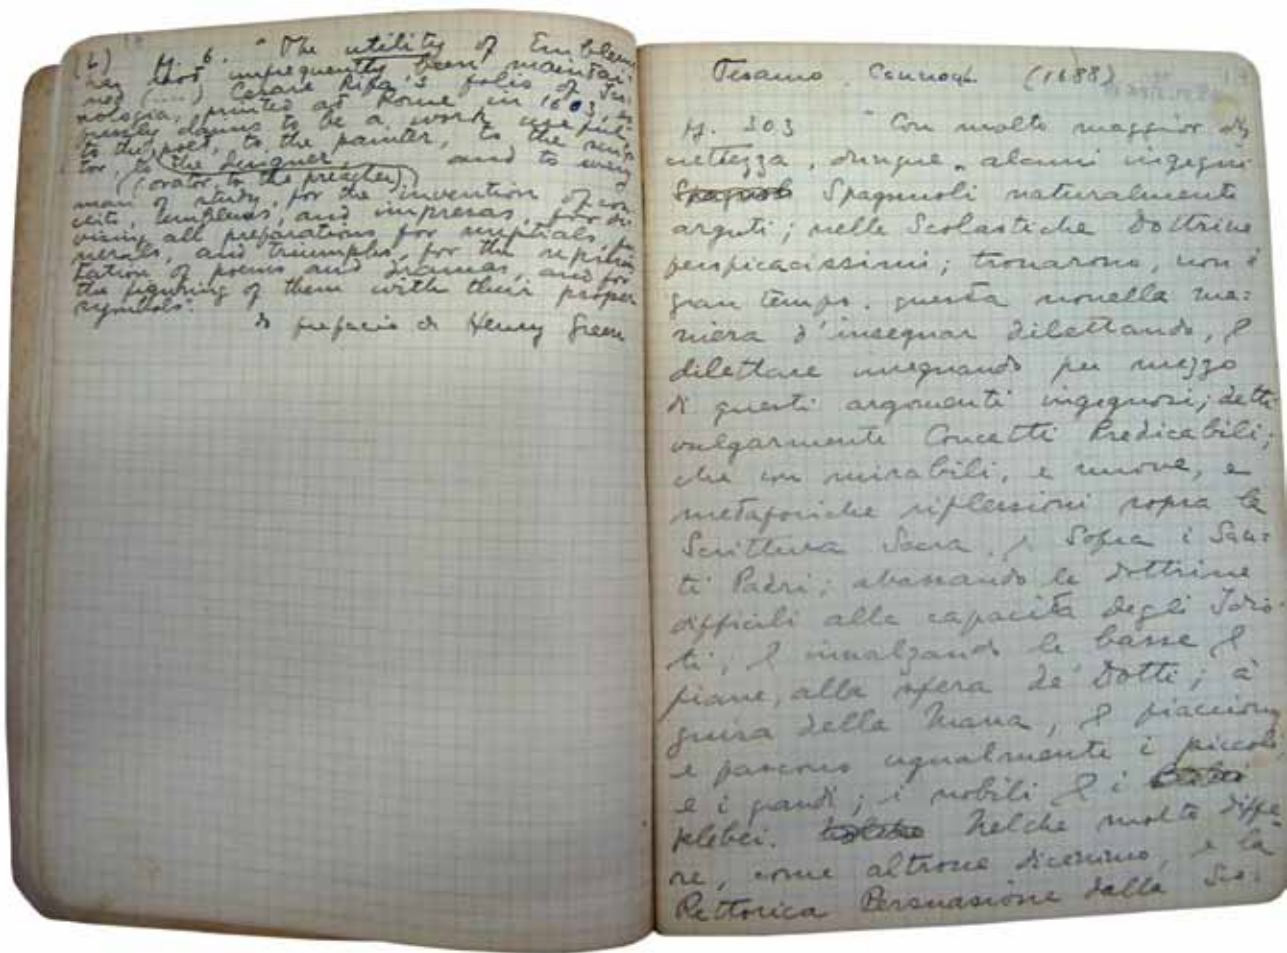 (6) pg. 6. "The utility of Emblems
has not unfrequently been maintai-
ned (....) Cesare Ripa's folio of Ico-
nologia, printed at Rome in 1603, ex
pressly claims to be a work useful
to the poet, to the painter, to the sculp
tor, to the designer, and to every
(orator, to the preacher)
man of study, for the invention of con
ceits, emblems, and impresas, for di
vising all preparations for nuptials, fu
nerals, and triumphs, for the
tation of poems and dramas, and for
the figuring of them with their proper
symbols."
do prefacio de Henry Green
Tesauro, Cannoch. (1688)
pg. 303 "Con molto maggior di
nettezza, dunque, alcuni ingegni
Spagnoli Spagnuoli naturalmente
arguti; nelle Scolastiche Dottrine
perspicacissimi; trovarono, non è
gran tempo, questa novella ma:
niera d'insegnar dilettando, &
dilettare insegnando per mezzo
di questi argomenti ingegnosi; detti
vulgarmente Concetti Predicabili;
che con mirabili, e nuove, e
metaforiche riflessioni sopra la
Scrittura Sacra, & Sopra i San:
ti Padri; abassando le dottrine
difficili alla capacità degli Idio
ti, & innalzando le basse &
piane, alla sfera de' Dotti; à
guisa della Mana, & piacciono
e pascono ugualmente i piccoli
e i grandi; i nobili & i
plebei. Nelche molto diffe
re, come altrove diceximo, e la
Rettorica Persuasione dalla Sco: